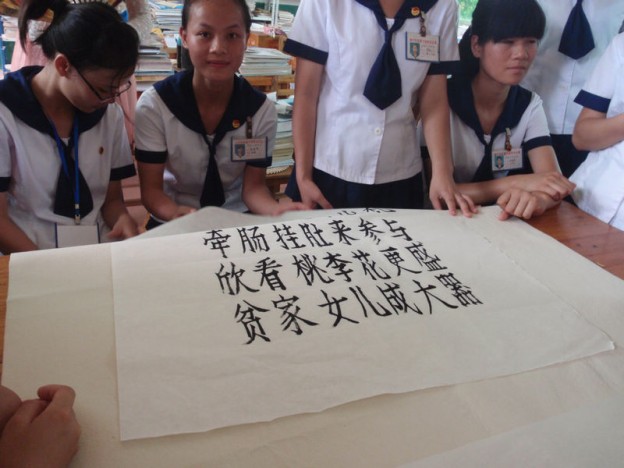 牵肠挂肚来参与
欣看桃李花更盛
贫家女儿成大器